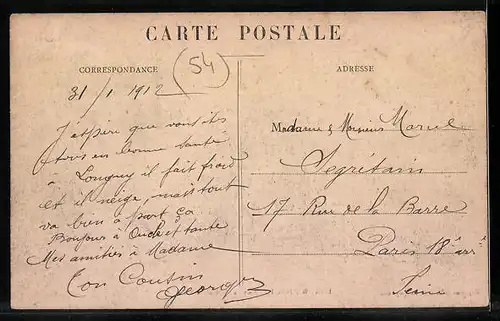 CARTE POSTALE
CORRESPONDANCE
54
ADRESSE
31/1 1912
J'espère que vous êtes
tous en bonne santé
à Longwy il fait froid
et il neige, mais tout
va bien à part ça
Bonjour à Oncle et tante
Mes amitiés à Madame
Ton Cousin
Georges
Madame & Monsieur Marcel
Segrétain
17 Rue de la Barre
Paris 18e arrt
Seine